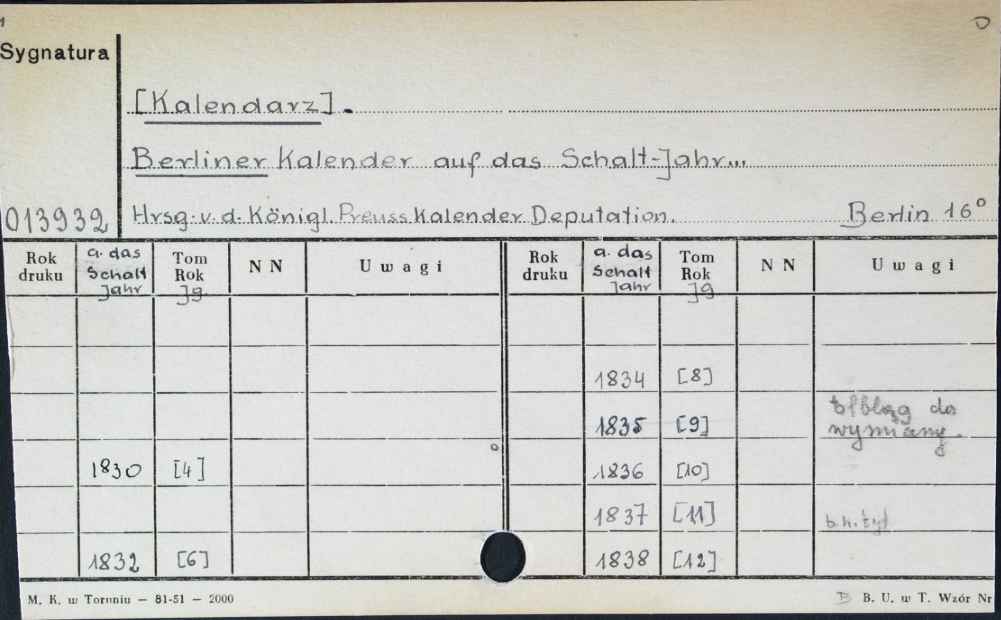 Sygnatura
[Kalendarz].
Berliner Kalender auf das Schalt-Jahr...
013932 Hrsg. v. d. Königl. Preuss. Kalender Deputation. Berlin 16°
Rok druku a. das Schalt Jahr Tom Rok Jg NN Uwagi Rok druku a. das Schalt Jahr Tom Rok Jg NN Uwagi
1834 [8]
1835 [9] do wymiany.
1830 [4] 1836 [10]
1837 [11]
1832 [6] 1838 [12]
M. K. w Toruniu — 81-51 — 2000 B. U. w T. Wzór Nr